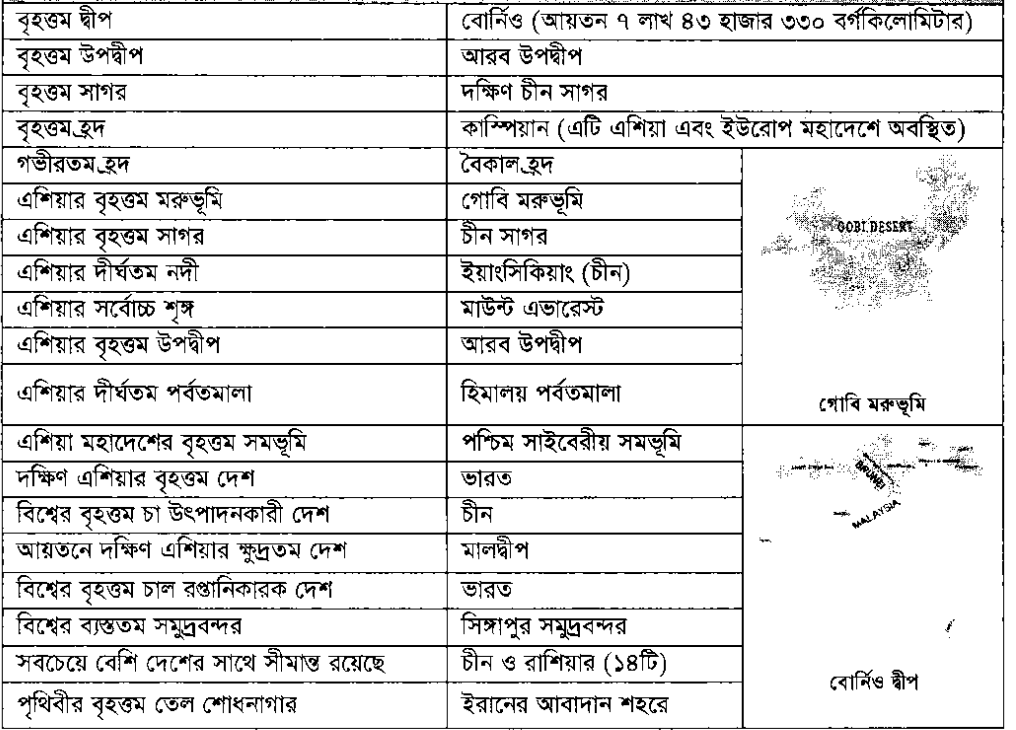 বৃহত্তম দ্বীপ বোর্নিও (আয়তন ৭ লাখ ৪৩ হাজার ৩৩০ বর্গকিলোমিটার)
বৃহত্তম উপদ্বীপ আরব উপদ্বীপ
বৃহত্তম সাগর দক্ষিণ চীন সাগর
বৃহত্তম হ্রদ কাস্পিয়ান (এটি এশিয়া এবং ইউরোপ মহাদেশে অবস্থিত)
গভীরতম হ্রদ বৈকাল হ্রদ
এশিয়ার বৃহত্তম মরুভূমি গোবি মরুভূমি
এশিয়ার বৃহত্তম সাগর চীন সাগর
এশিয়ার দীর্ঘতম নদী ইয়াংসিকিয়াং (চীন)
এশিয়ার সর্বোচ্চ শৃঙ্গ মাউন্ট এভারেস্ট
এশিয়ার বৃহত্তম উপদ্বীপ আরব উপদ্বীপ
এশিয়ার দীর্ঘতম পর্বতমালা হিমালয় পর্বতমালা
GOBI DESERT
গোবি মরুভূমি
এশিয়া মহাদেশের বৃহত্তম সমভূমি পশ্চিম সাইবেরীয় সমভূমি
দক্ষিণ এশিয়ার বৃহত্তম দেশ ভারত
বিশ্বের বৃহত্তম চা উৎপাদনকারী দেশ চীন
আয়তনে দক্ষিণ এশিয়ার ক্ষুদ্রতম দেশ মালদ্বীপ
বিশ্বের বৃহত্তম চাল রপ্তানিকারক দেশ ভারত
বিশ্বের ব্যস্ততম সমুদ্রবন্দর সিঙ্গাপুর সমুদ্রবন্দর
সবচেয়ে বেশি দেশের সাথে সীমান্ত রয়েছে চীন ও রাশিয়ার (১৪টি)
পৃথিবীর বৃহত্তম তেল শোধনাগার ইরানের আবাদান শহরে
BRUNEI
MALAYSIA
বোর্নিও দ্বীপ